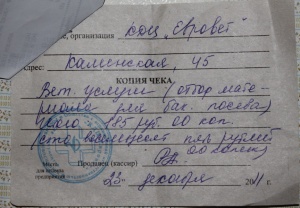 е, организация КОЦ "Евровет"
Адрес: Калинская, 45
КОПИЯ ЧЕКА
Вет. услуги (отбор мате-
риала для бак. посева)
185 руб. 00 коп.
(сто восемьдесят пять рублей
00 копеек)
Место для печати предприятия Продавец (кассир)
23 декабря 2011 г.